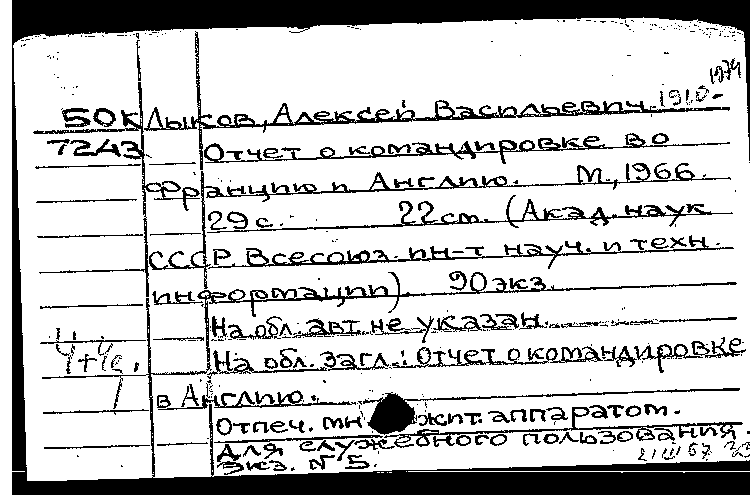 1974
50К Лыков, Алексей Васильевич. 1910-
7243 Отчет о командировке во
Францию и Англию. М., 1966.
29 с. 22 см. (Акад. наук
СССР. Всесоюз. ин-т науч. и техн.
информации). 90 экз.
На обл. авт. не указан.
На обл. загл.: Отчет о командировке
в Англию.
Отпеч. мн жит. аппаратом.
Для служебного пользования.
Экз. № 5.